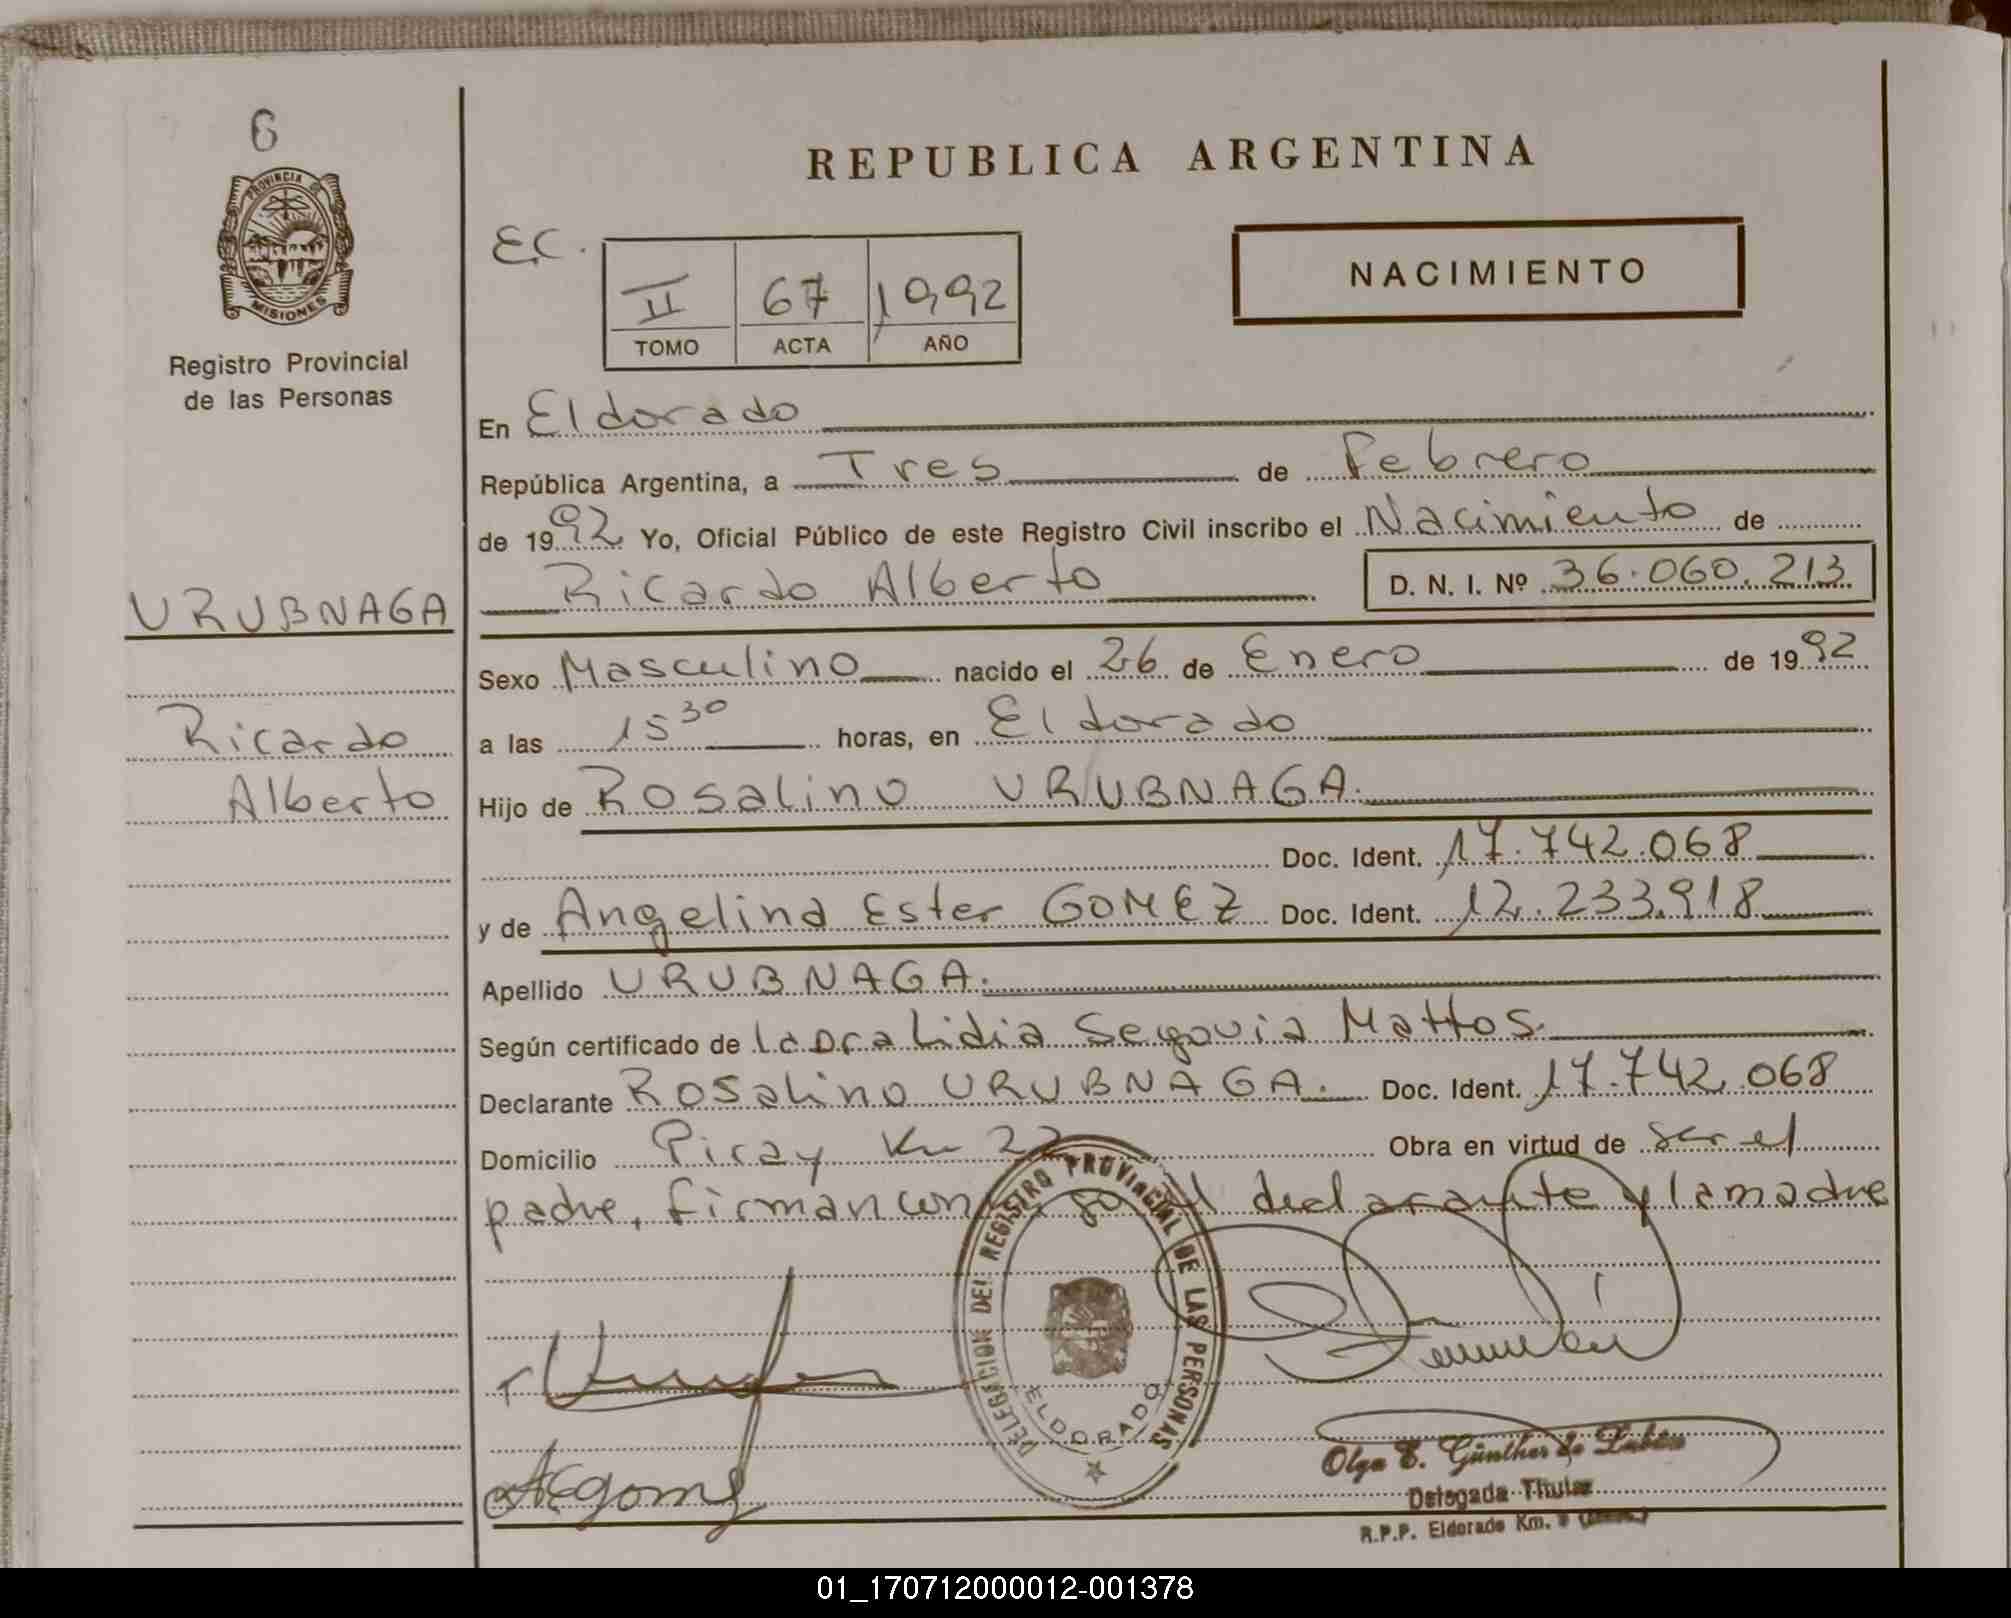 6
PROVINCIA DE
MISIONES
Registro Provincial
de las Personas
URUBNAGA
Ricardo
Alberto
REPUBLICA ARGENTINA
E.C.
II 67 1992
TOMO ACTA AÑO
NACIMIENTO
En Eldorado
República Argentina, a Tres de Febrero
de 1992 Yo, Oficial Público de este Registro Civil inscribo el Nacimiento de
Ricardo Alberto D. N. I. Nº 36.060.213
Sexo Masculino nacido el 26 de Enero de 1992
a las 15 30 horas, en Eldorado
Hijo de Rosalino URUBNAGA.
Doc. Ident. 17.742.068
y de Angelina Ester GOMEZ Doc. Ident. 12.233.918
Apellido URUBNAGA.
Según certificado de la Dra Lidia Segovia Mattos.
Declarante Rosalino URUBNAGA. Doc. Ident. 17.742.068
Domicilio Piray Km 22 Obra en virtud de ser el
padre, firman con declarante y la madre
DELEGACION DEL REGISTRO PROVINCIAL DE LAS PERSONAS
ELDORADO
AEgomez
Olga E. Günther de
Delegada Titular
R.P.P. Eldorado Km. 9
01_170712000012-001378